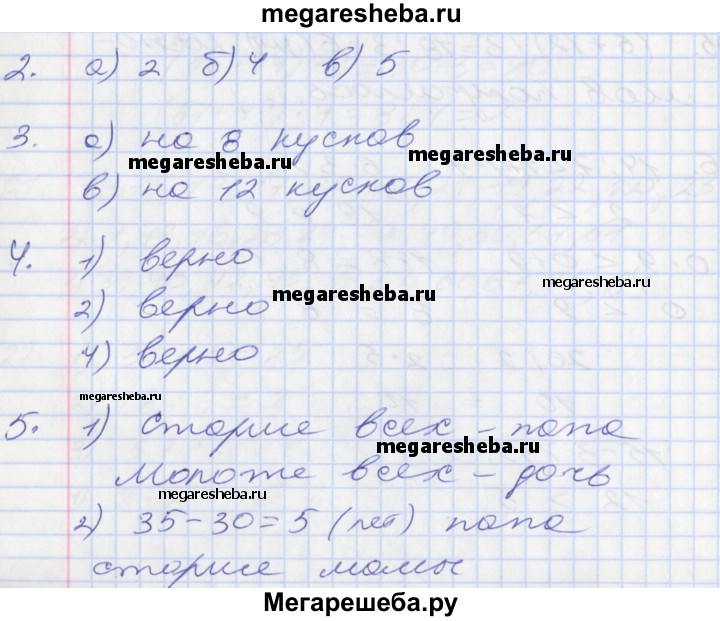 megaresheba.ru
2. а) 2 б) 4 в) 5
3. а) на 8 кусков
megaresheba.ru megaresheba.ru
в) на 12 кусков
4. 1) верно
megaresheba.ru
megaresheba.ru
2) верно
4) верно
megaresheba.ru
5. 1) Старше всех – папа
megaresheba.ru
Моложе всех – дочь
megaresheba.ru
2) 35 – 30 = 5 (лет) папа
старше мамы
Мегарешеба.ру